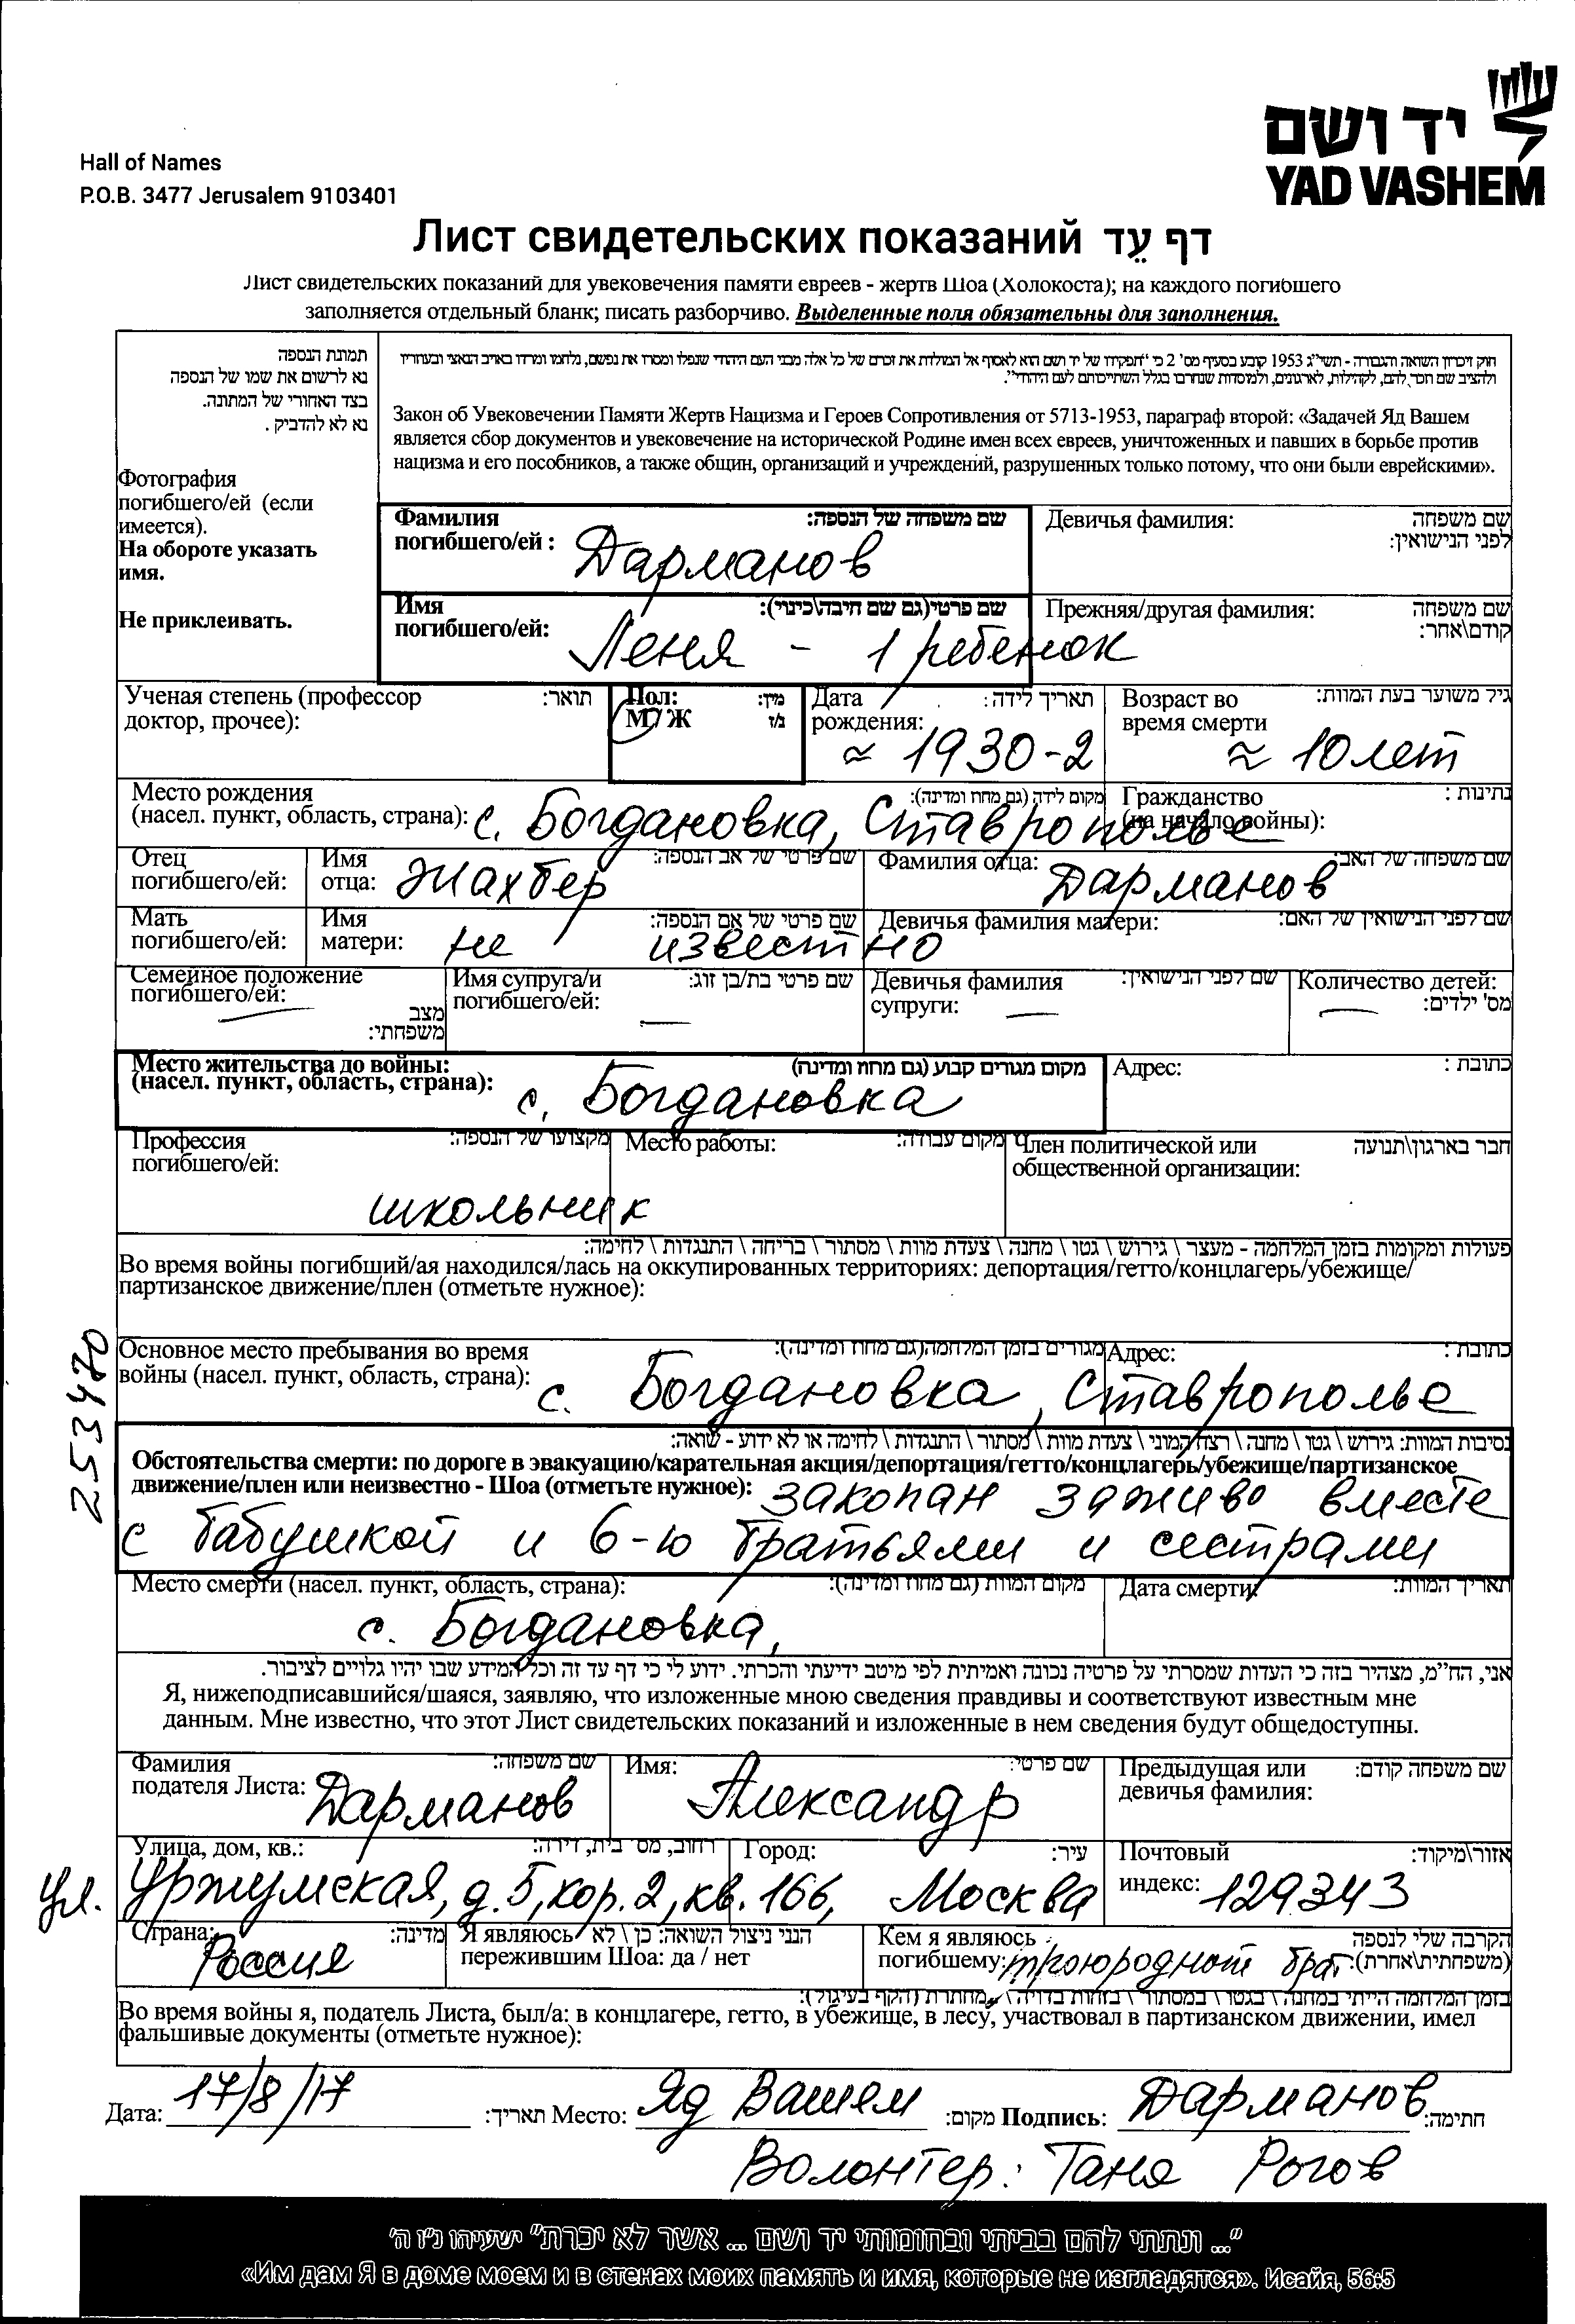 יד ושם
YAD VASHEM
Hall of Names
P.O.B. 3477 Jerusalem 9103401
Лист свидетельских показаний דף עֵד
Лист свидетельских показаний для увековечения памяти евреев - жертв Шоа (Холокоста); на каждого погибшего
заполняется отдельный бланк; писать разборчиво. Выделенные поля обязательны для заполнения.
תמונת הנספה
נא לרשום את שמו של הנספה
בצד האחורי של המתונה.
נא לא להדביק .
Фотография
погибшего/ей (если
имеется).
На обороте указать
имя.
Не приклеивать.
חוק זיכרון השואה והגבורה - תשי"ג 1953 קובע בסעיף מס' 2 כי "תפקידו של יד ושם הוא לאסוף אל המולדת את זכרם של כל אלה מבני העם היהודי שנפלו ומסרו את נפשם, נלחמו ומרדו באויב הנאצי ובעוזריו
ולהציב שם וזכר להם, לקהילות, לארגונים, ולמוסדות שנחרבו בגלל השתייכותם לעם היהודי".
Закон об Увековечении Памяти Жертв Нацизма и Героев Сопротивления от 5713-1953, параграф второй: «Задачей Яд Вашем
является сбор документов и увековечение на исторической Родине имен всех евреев, уничтоженных и павших в борьбе против
нацизма и его пособников, а также общин, организаций и учреждений, разрушенных только потому, что они были еврейскими».
Фамилия погибшего/ей : שם משפחה של הנספה: Дарманов
Девичья фамилия: שם משפחה לפני הנישואין:
Имя погибшего/ей: שם פרטי(גם שם חיבה\כינוי): Леня - 1 ребенок
Прежняя/другая фамилия: שם משפחה קודם\אחר:
Ученая степень (профессор доктор, прочее): תואר:
Пол: М / Ж מין: ז/נ
Дата рождения: תאריך לידה: ≈ 1930-2
Возраст во время смерти גיל משוער בעת המוות: ≈ 10 лет
Место рождения (насел. пункт, область, страна): מקום לידה (גם מחוז ומדינה): с. Богдановка, Ставрополье
Гражданство (на начало войны): נתינות :
Отец погибшего/ей: Имя отца: שם פרטי של אב הנספה: Жахбер
Фамилия отца: שם משפחה של האב: Дарманов
Мать погибшего/ей: Имя матери: שם פרטי של אם הנספה: не известно
Девичья фамилия матери: שם לפני הנישואין של האם:
Семейное положение погибшего/ей: מצב משפחתי: —
Имя супруга/и погибшего/ей: שם פרטי בת/בן זוג: —
Девичья фамилия супруги: שם לפני הנישואין: —
Количество детей: מס' ילדים: —
Место жительства до войны: (насел. пункт, область, страна): מקום מגורים קבוע (גם מחוז ומדינה) с. Богдановка
Адрес: כתובת :
Профессия погибшего/ей: מקצועו של הנספה: школьник
Место работы: מקום עבודה:
Член политической или общественной организации: חבר בארגון\תנועה
פעולות ומקומות בזמן המלחמה - מעצר \ גירוש \ גטו \ מחנה \ צעדת מוות \ מסתור \ בריחה \ התנגדות \ לחימה:
Во время войны погибший/ая находился/лась на оккупированных территориях: депортация/гетто/концлагерь/убежище/
партизанское движение/плен (отметьте нужное):
253470
Основное место пребывания во время войны (насел. пункт, область, страна): מגורים בזמן המלחמה(גם מחוז ומדינה): с. Богдановка, Ставрополье
Адрес: כתובת :
נסיבות המוות: גירוש \ גטו \ מחנה \ רצח המוני \ צעדת מוות \ מסתור \ התנגדות \ לחימה או לא ידוע - שואה:
Обстоятельства смерти: по дороге в эвакуацию/карательная акция/депортация/гетто/концлагерь/убежище/партизанское
движение/плен или неизвестно - Шоа (отметьте нужное): закопан заживо вместе
с бабушкой и 6-ю братьями и сестрами
Место смерти (насел. пункт, область, страна): מקום המוות (גם מחוז ומדינה): с. Богдановка,
Дата смерти: תאריך המוות:
אני, הח"מ, מצהיר בזה כי העדות שמסרתי על פרטיה נכונה ואמיתית לפי מיטב ידיעתי והכרתי. ידוע לי כי דף עד זה וכל המידע שבו יהיו גלויים לציבור.
Я, нижеподписавшийся/шаяся, заявляю, что изложенные мною сведения правдивы и соответствуют известным мне
данным. Мне известно, что этот Лист свидетельских показаний и изложенные в нем сведения будут общедоступны.
Фамилия подателя Листа: שם משפחה: Дарманов
Имя: שם פרטי: Александр
Предыдущая или девичья фамилия: שם משפחה קודם:
Улица, дом, кв.: רחוב, מס' בית, דירה: ул. Уржумская, д. 5, кор. 2, кв. 166,
Город: עיר: Москва
Почтовый индекс: אזור\מיקוד: 129343
Страна: מדינה: Россия
Я являюсь пережившим Шоа: да / нет הנני ניצול השואה: כן \ לא
Кем я являюсь погибшему: הקרבה שלי לנספה (משפחתית\אחרת): троюродный брат
בזמן המלחמה הייתי במחנה \ בגטו \ במסתור \ בזהות בדויה \ מחתרת (הקף בעיגול):
Во время войны я, податель Листа, был/а: в концлагере, гетто, в убежище, в лесу, участвовал в партизанском движении, имел
фальшивые документы (отметьте нужное):
Дата: 17/8/17 תאריך: Место: Яд Вашем מקום: Подпись: Дарманов חתימה:
Волонтер: Таня Рогов
"... ונתתי להם בביתי ובחומותי יד ושם ... אשר לא יכרת" ישעיהו נ"ו ה'
«Им дам Я в доме моем и в стенах моих память и имя, которые не изгладятся». Исайя, 56:5